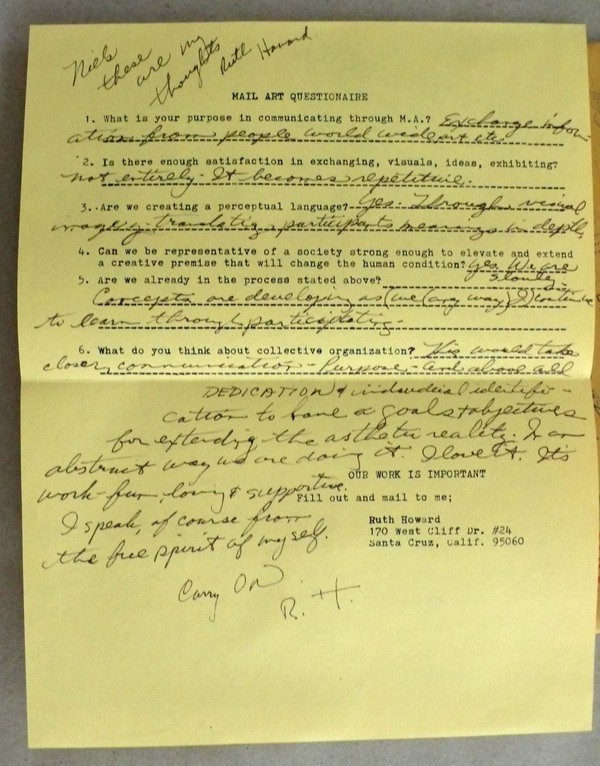 Niels
these are my
thoughts
Ruth Howard.
MAIL ART QUESTIONAIRE
1. What is your purpose in communicating through M.A.? Exchange infor-
ation from people world wide art etc.
2. Is there enough satisfaction in exchanging, visuals, ideas, exhibiting?
not entirely - It becomes repetitive.
3. Are we creating a perceptual language? Yes. Through visual
imagery translating, participants meanings in depth.
4. Can we be representative of a society strong enough to elevate and extend
a creative premise that will change the human condition? Yes We are
5. Are we already in the process stated above?
Concepts are developing as we (any way, I) continue
to learn through participating
6. What do you think about collective organization? This would take
closer communication - Purpose - and above all
DEDICATION & individual identifi-
cation to have a goals & objectives
for extending the asthetic reality. In an
abstract way we are doing it. I love it. Its
work - fun, loving & supportive.
OUR WORK IS IMPORTANT
Fill out and mail to me;
I speak, of course from
the free spirit of myself.
Ruth Howard
170 West Cliff Dr. #24
Santa Cruz, Calif. 95060
Carry On
R. H.